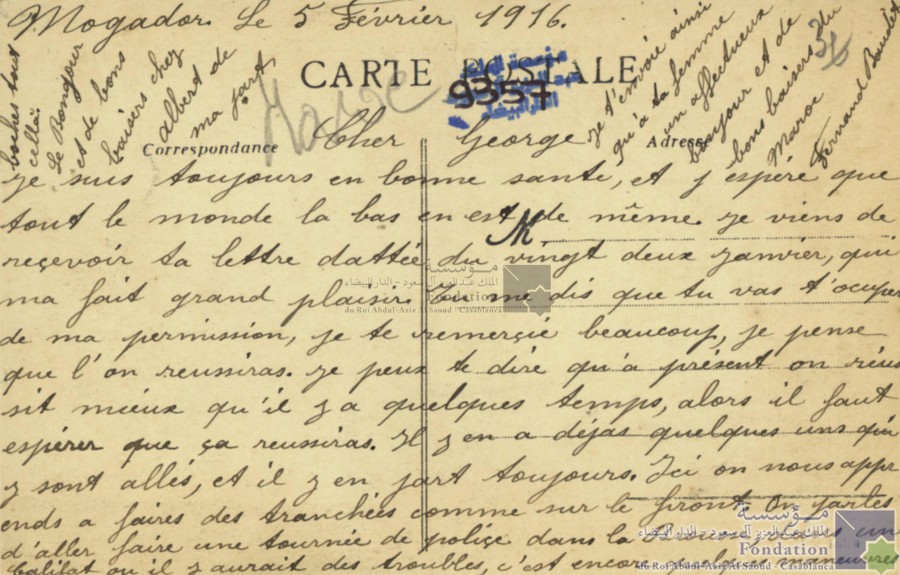 Mogador. Le 5 Février 1916.
CARTE POSTALE
9357
Maroc
Correspondance
Adresse
Cher George
je suis toujours en bonne sante, et j'espére que
tout le monde la bas en est de même. je viens de
reçevoir ta lettre dattée du vingt deux janvier, qui
ma fait grand plaisir. tu me dis que tu vas t'occuper
de ma permission, je te remerçie beaucoup, je pense
que l'on reussiras. je peux te dire qu'a présent on réus
sit mieux qu'il y a quelques temps, alors il faut
espérer que ça reussiras. Il y en a déjas quelques uns qui
y sont allés, et il y en part toujours. Ici on nous appr
ends a faires des tranchées comme sur le front. On parles
d'aller faire une tournée de poliçe dans la
ou il y aurait des troubles, c'est encore
boches tout
Le Bonjour
et de bons
baisers chez
Albert de
ma part
je t'envoie ainsi
qu'a ta femme
un affectueux
bonjour et de
bons baisers du
Maroc
Fernand Baudet
مؤسسة
الملك عبد العزيز آل سعود - الدار البيضاء
Fondation
du Roi Abdul-Aziz Al Saoud - Casablanca
مؤسسة
الملك عبد العزيز آل سعود - الدار البيضاء
Fondation
du Roi Abdul-Aziz Al Saoud - Casablanca